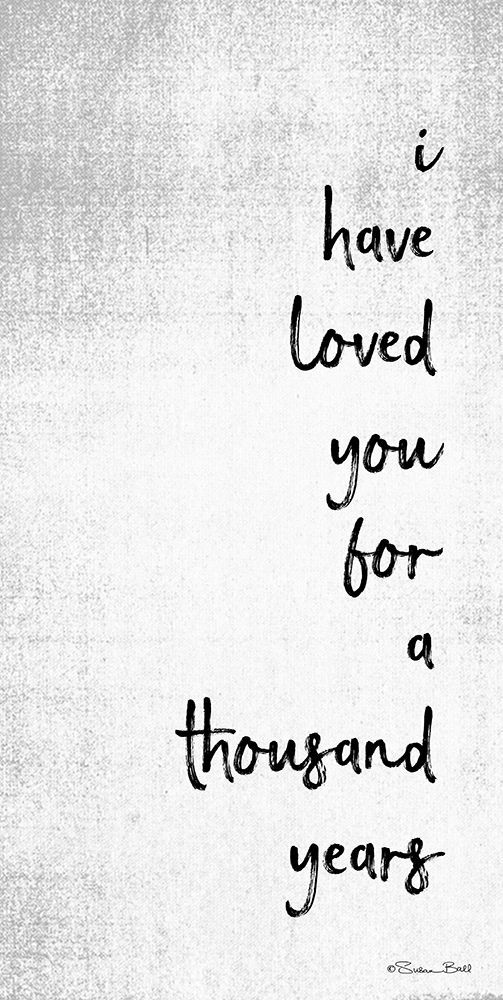 i
have
loved
you
for
a
thousand
years
© Susan Ball